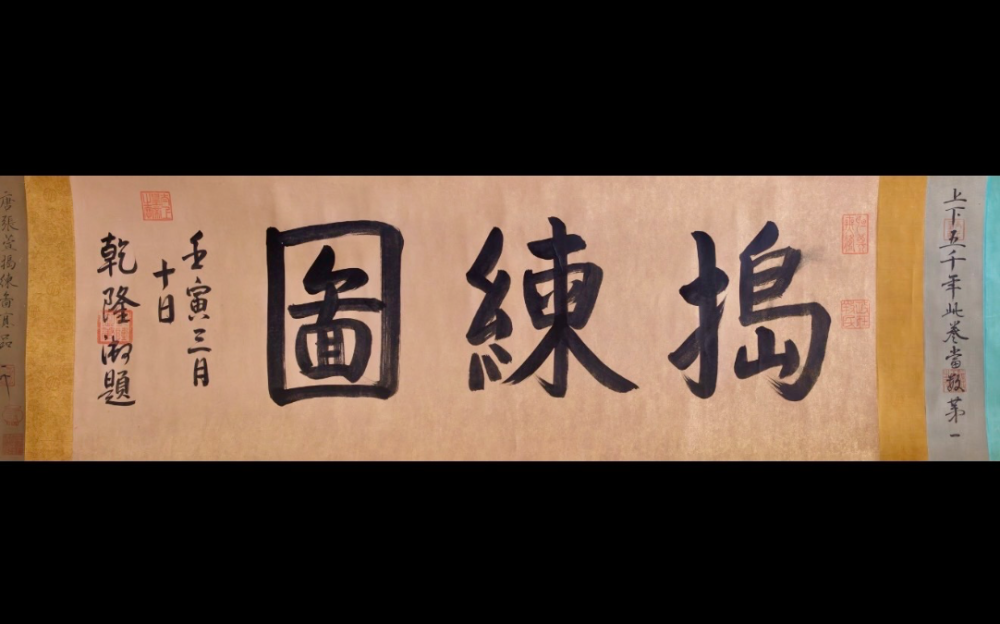 上下五千年此卷當推第一
搗練圖
壬寅三月
十日
乾隆御題
唐張萱搗練圖真品